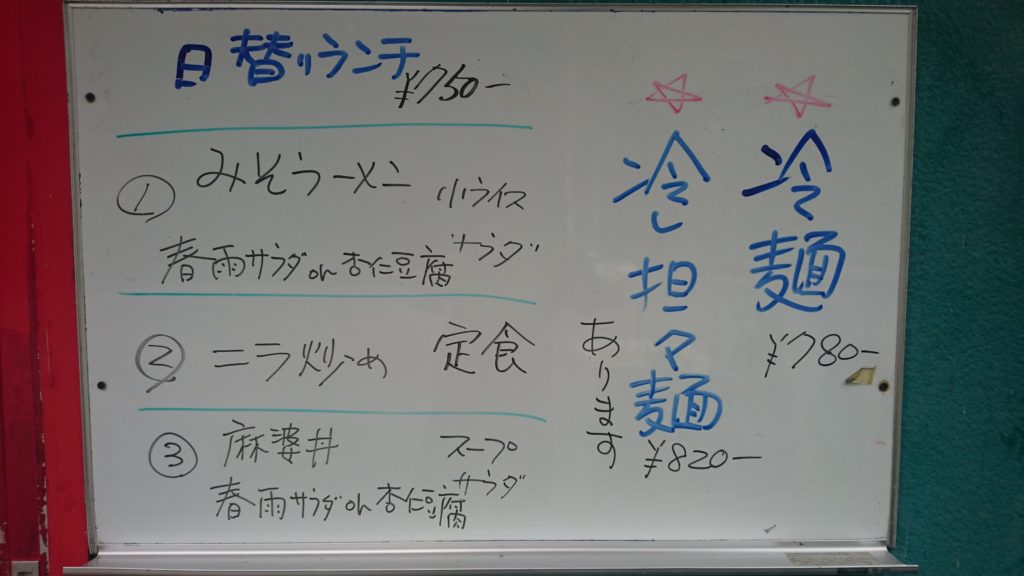 日替りランチ
¥750ー
① みそラーメン 小ライス
サラダ
春雨サラダ or 杏仁豆腐
② ニラ炒め 定食
③ 麻婆丼 スープ
サラダ
春雨サラダ or 杏仁豆腐
☆冷麺
¥780ー
☆冷し担々麺
¥820ー
あります